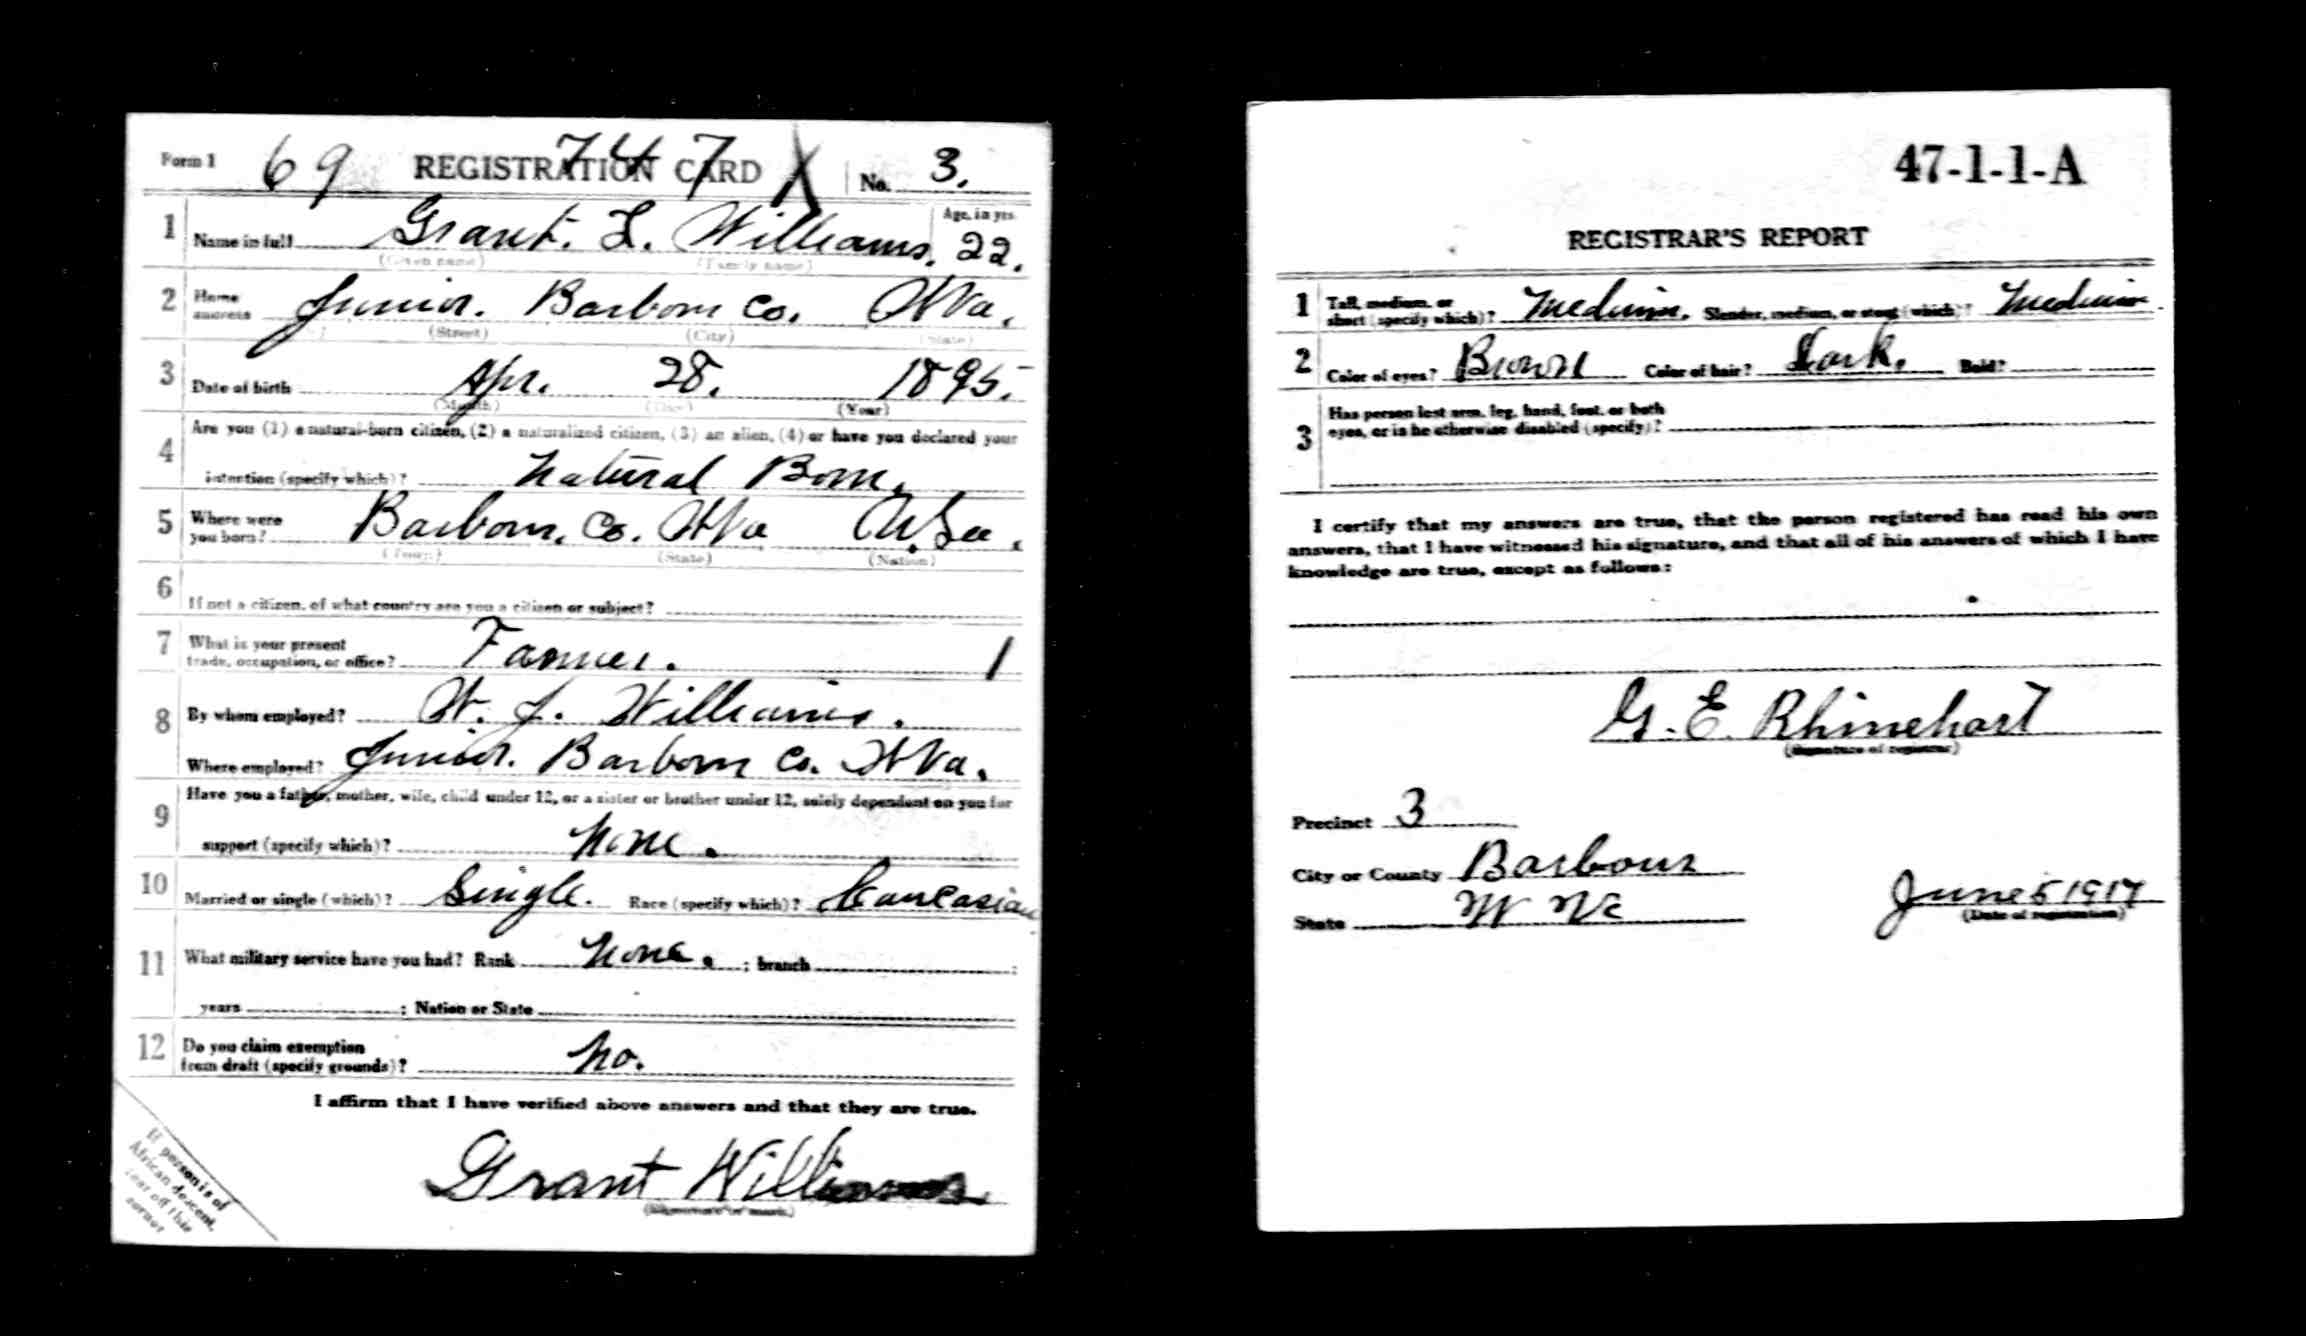 Form 1 69 REGISTRATION CARD 747 X No. 3.
1 Name in full Grant. L. Williams. Age, in yrs. 22.
(Given name) (Family name)
2 Home address Junior. Barbour Co. W Va.
(Street) (City) (State)
3 Date of birth Apr. 28. 1895.
(Month) (Day) (Year)
4 Are you (1) a natural-born citizen, (2) a naturalized citizen, (3) an alien, (4) or have you declared your
intention (specify which)? Natural Born.
5 Where were you born? Barbour. Co. W Va U.S.a.
(Town) (State) (Nation)
6 If not a citizen, of what country are you a citizen or subject?
7 What is your present trade, occupation, or office? Farmer. 1
8 By whom employed? W. J. Williams.
Where employed? Junior. Barbour Co. W Va.
9 Have you a father, mother, wife, child under 12, or a sister or brother under 12, solely dependent on you for
support (specify which)? None.
10 Married or single (which)? Single. Race (specify which)? Caucasian
11 What military service have you had? Rank None. ; branch ;
years ; Nation or State
12 Do you claim exemption from draft (specify grounds)? No.
I affirm that I have verified above answers and that they are true.
Grant Williams
(Signature or mark)
If person is of
African descent,
tear off this
corner
47-1-1-A
REGISTRAR'S REPORT
1 Tall, medium, or short (specify which)? Medium. Slender, medium, or stout (which)? Medium.
2 Color of eyes? Brown Color of hair? Dark. Bald?
3 Has person lost arm, leg, hand, foot, or both
eyes, or is he otherwise disabled (specify)?
I certify that my answers are true, that the person registered has read his own
answers, that I have witnessed his signature, and that all of his answers of which I have
knowledge are true, except as follows:
G. E. Rhinehart
(Signature of registrar)
Precinct 3
City or County Barbour
State W Va June 5 1917
(Date of registration)